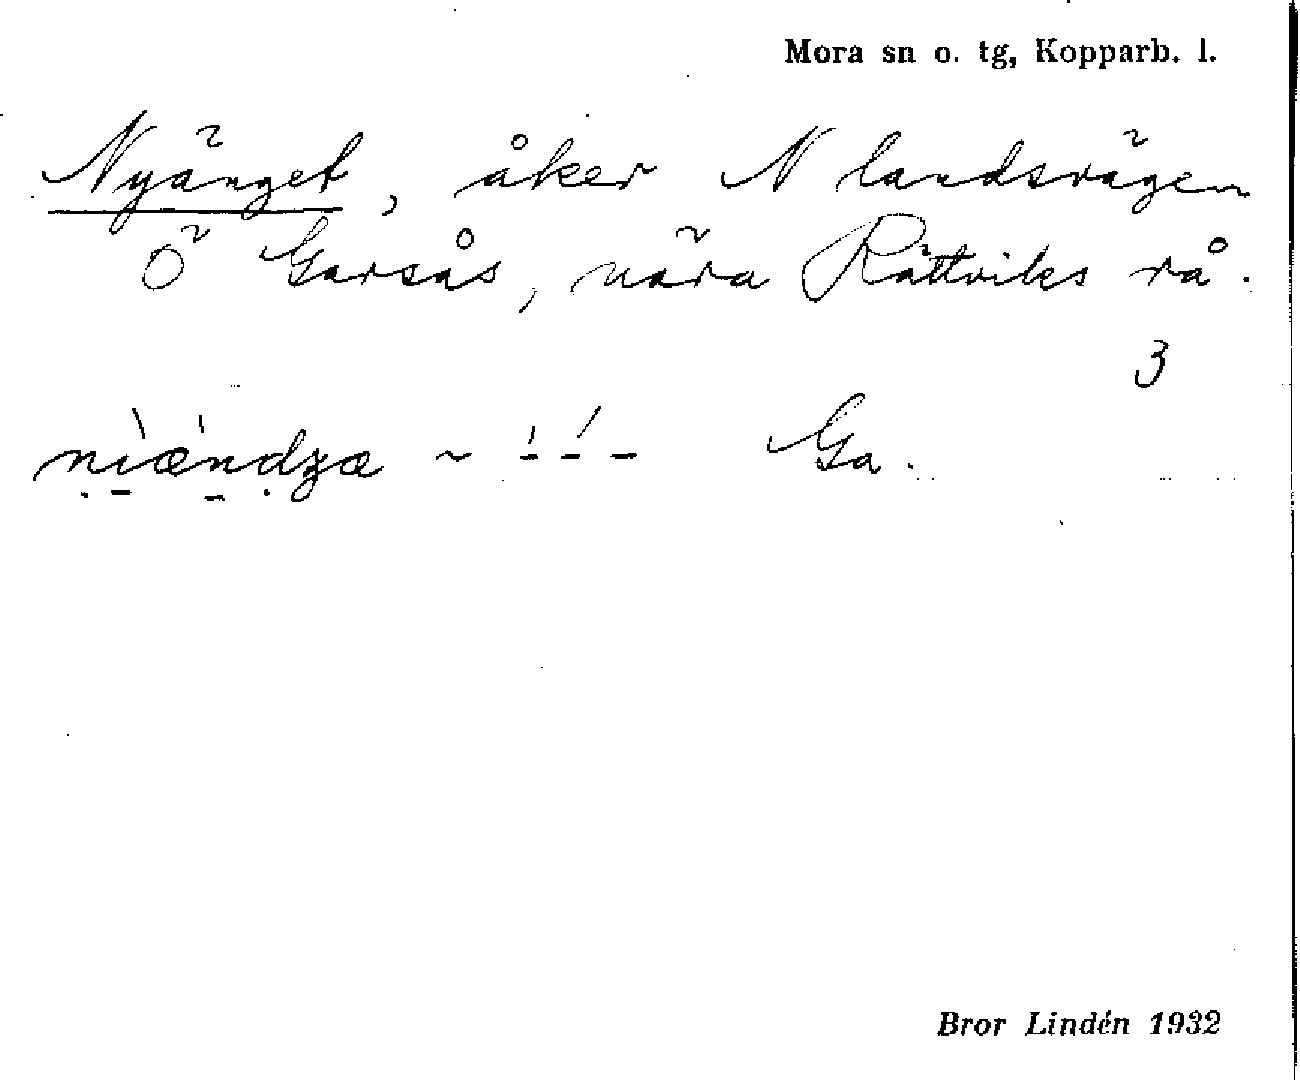 Mora sn o. tg, Kopparb. l.
Nyänget, åker N landsvägen
Ö Garsås, nära Rättviks rå.
3
nìæ̀ndʒæ ~ Ga.
Bror Lindén 1932